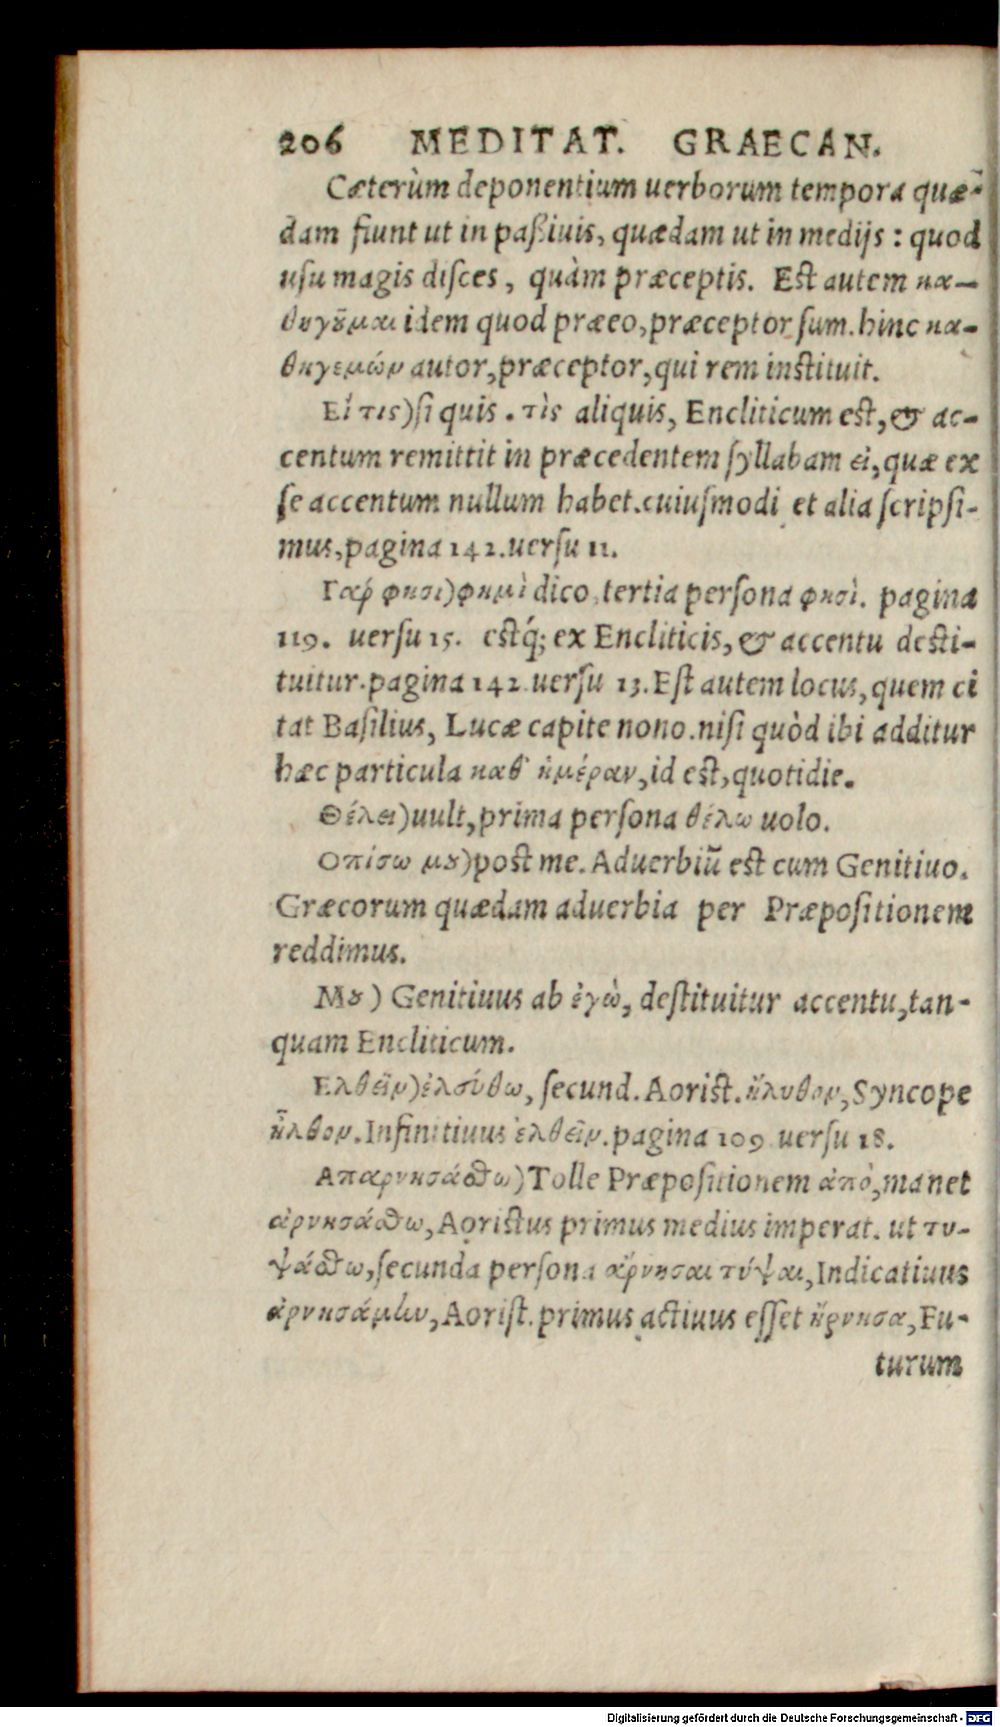 206 MEDITAT. GRAECAN.
Cæterùm deponentium uerborum tempora quæ-
dam fiunt ut in paßiuis, quædam ut in medijs : quod
uſu magis diſces, quàm præceptis. Eſt autem κα-
θηγοῦμαι idem quod præeo, præceptor ſum. hinc κα-
θηγεμών autor, præceptor, qui rem inſtituit.
Εἴ τις) ſi quis. τὶς aliquis, Encliticum eſt, & ac-
centum remittit in præcedentem ſyllabam εἰ, quæ ex
ſe accentum nullum habet. cuiuſmodi et alia ſcripſi-
mus, pagina 142. uerſu 11.
Γαρ́ φησι) φημὶ dico, tertia perſona φησὶ. pagina
119. uerſu 15. eſtq́; ex Encliticis, & accentu deſti-
tuitur. pagina 142. uerſu 13. Eſt autem locus, quem ci
tat Baſilius, Lucæ capite nono. niſi quòd ibi additur
hæc particula καθ' ἡμέραν, id eſt, quotidie.
Θέλει) uult, prima perſona θέλω uolo.
Οπίσω μȣ) poſt me. Aduerbiũ eſt cum Genitiuo.
Græcorum quædam aduerbia per Præpoſitionem
reddimus.
Μȣ) Genitiuus ab ἐγὼ, deſtituitur accentu, tan-
quam Encliticum.
Ελθεῖν) ἐλσύθω, ſecund. Aoriſt. ἤλυθον, Syncope
ἦλθον. Infinitiuus ἐλθεῖν. pagina 109 uerſu 18.
Απαρνησάσθω) Tolle Præpoſitionem ἀπὸ, manet
ἀρνησάσθω, Aoriſtus primus medius imperat. ut τυ-
ψάσθω, ſecunda perſona ἄρνησαι τύψαι, Indicatiuus
ἀρνησάμην, Aoriſt. primus actiuus eſſet ἤρνησα, Fu-
turum
Digitalisierung gefördert durch die Deutsche Forschungsgemeinschaft - DFG